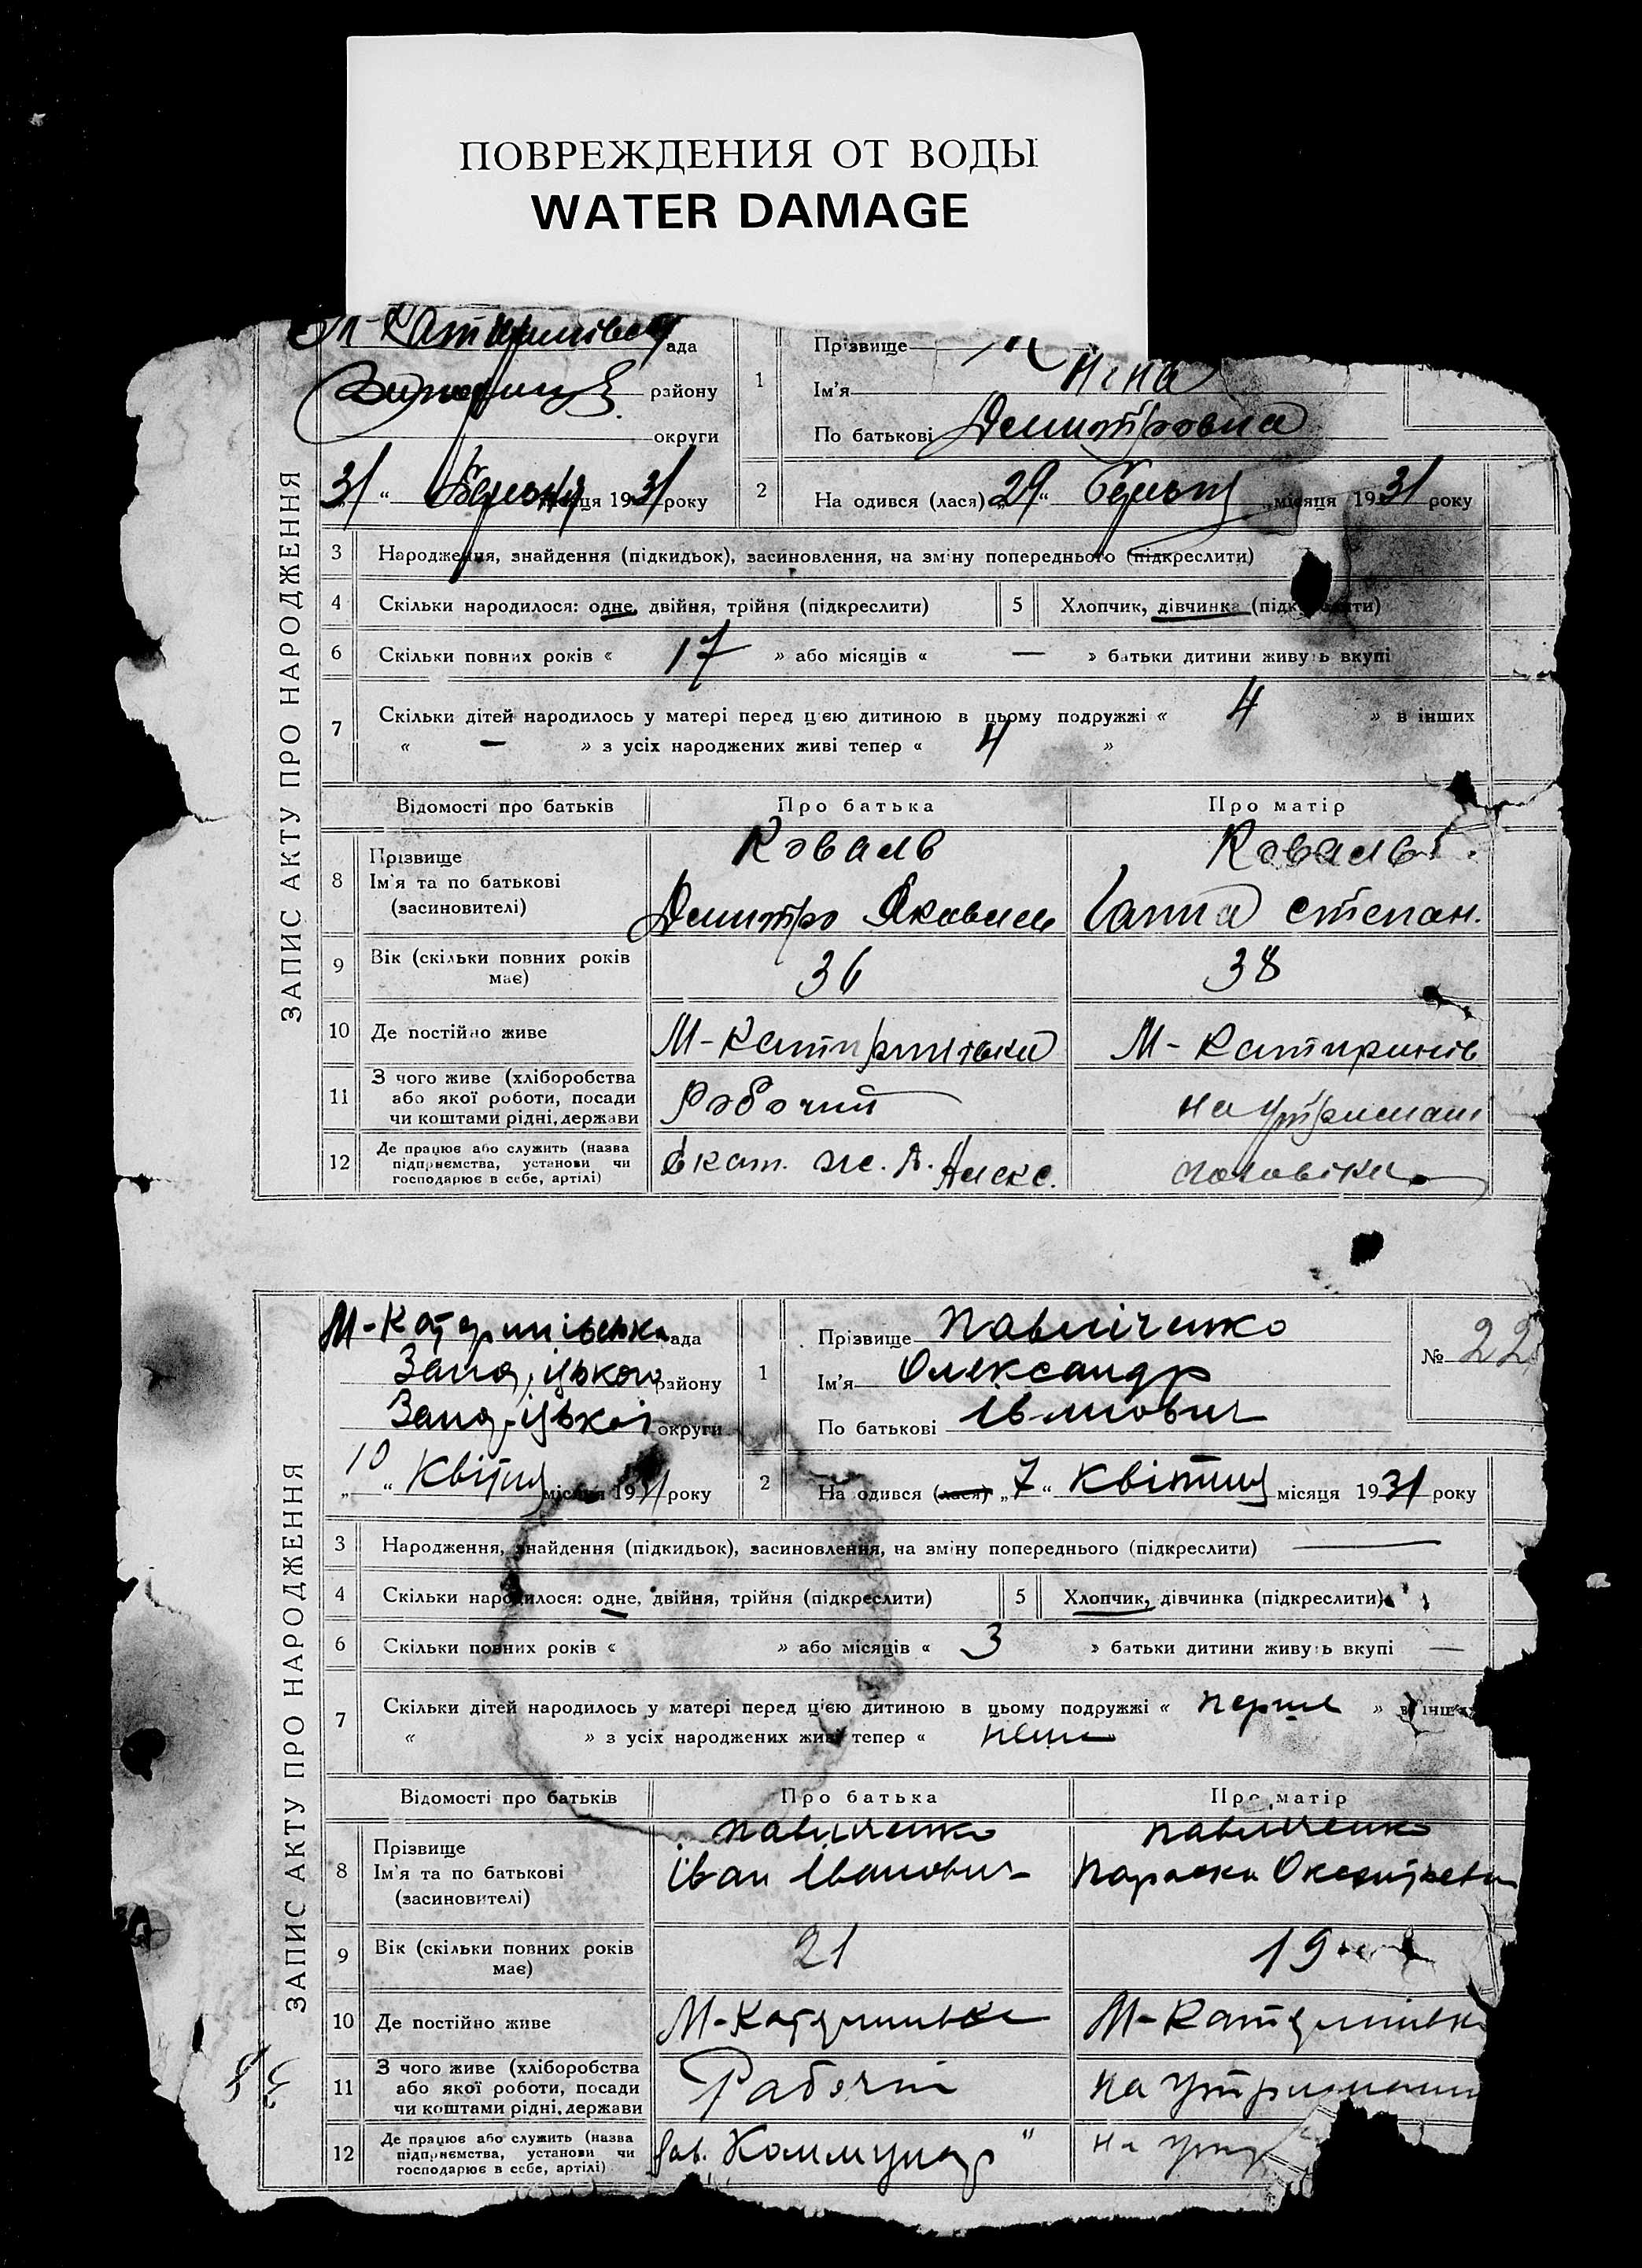 ПОВРЕЖДЕНИЯ ОТ ВОДЫ
WATER DAMAGE
ЗАПИС АКТУ ПРО НАРОДЖЕННЯ
ада
району
округи
31 " Березня 1931 року
1
Прізвище
Ім'я Ніна
По батькові Демитровна
2 На одився (лася) 29 " березня місяця 1931 року
3 Народження, знайдення (підкидьок), засиновлення, на зміну попереднього (підкреслити)
4 Скільки народилося: одне, двійня, трійня (підкреслити) 5 Хлопчик, дівчинка (підкреслити)
6 Скільки повних років « 17 » або місяців « — » батьки дитини живуть вкупі
7 Скільки дітей народилось у матері перед цією дитиною в цьому подружжі « 4 » в інших
« — » з усіх народжених живі тепер « 4 »
Відомості про батьків Про батька Про матір
8 Прізвище Коваль Коваль
Ім'я та по батькові
(засиновителі) Демитро Якович Ганна Степан.
9 Вік (скільки повних років має) 36 38
10 Де постійно живе М-Катиринівка М-Катиринів
11 З чого живе (хліборобства
або якої роботи, посади
чи коштами рідні, держави Робочий на утриман
12 Де працює або служить (назва
підприємства, установи чи
господарює в себе, артілі) Екат. ж. д.
чоловіка
ЗАПИС АКТУ ПРО НАРОДЖЕННЯ
М-Катеринівська ада
Запорізького району
Запорізької округи
"10" Квітня місяця 1931 року
1
Прізвище Павліченко
Ім'я Олександр
По батькові Іванович
№ 22
2 На одився (лася) „7" Квітня місяця 1931 року
3 Народження, знайдення (підкидьок), засиновлення, на зміну попереднього (підкреслити) —
4 Скільки народилося: одне, двійня, трійня (підкреслити) 5 Хлопчик, дівчинка (підкреслити)
6 Скільки повних років « » або місяців « 3 » батьки дитини живуть вкупі —
7 Скільки дітей народилось у матері перед цією дитиною в цьому подружжі « перше » в інших
« » з усіх народжених живі тепер «
Відомості про батьків Про батька Про матір
8 Прізвище Павліченко Павліченко
Ім'я та по батькові
(засиновителі) Іван Іванович Параска
9 Вік (скільки повних років має) 21 19
10 Де постійно живе М-Катеринівка М-Катеринівка
11 З чого живе (хліборобства
або якої роботи, посади
чи коштами рідні, держави Рабочий на утриманні
12 Де працює або служить (назва
підприємства, установи чи
господарює в себе, артілі) зав. Коммунар" на